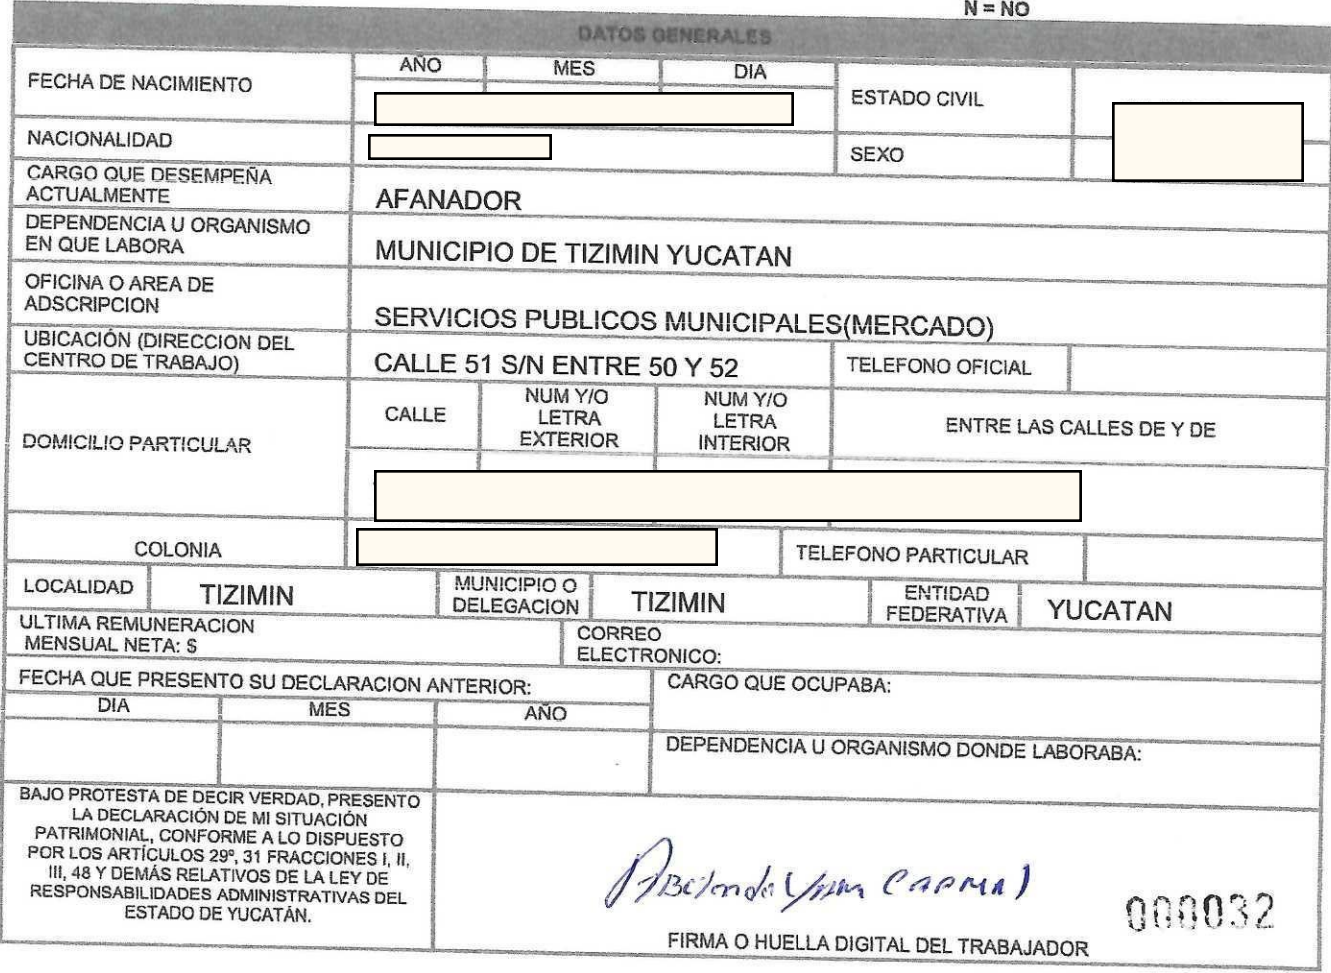 N = NO
DATOS GENERALES
FECHA DE NACIMIENTO
AÑO
MES
DIA
ESTADO CIVIL
NACIONALIDAD
SEXO
CARGO QUE DESEMPEÑA
ACTUALMENTE
AFANADOR
DEPENDENCIA U ORGANISMO
EN QUE LABORA
MUNICIPIO DE TIZIMIN YUCATAN
OFICINA O AREA DE
ADSCRIPCION
SERVICIOS PUBLICOS MUNICIPALES(MERCADO)
UBICACIÓN (DIRECCION DEL
CENTRO DE TRABAJO)
CALLE 51 S/N ENTRE 50 Y 52
TELEFONO OFICIAL
DOMICILIO PARTICULAR
CALLE
NUM Y/O
LETRA
EXTERIOR
NUM Y/O
LETRA
INTERIOR
ENTRE LAS CALLES DE Y DE
COLONIA
TELEFONO PARTICULAR
LOCALIDAD
TIZIMIN
MUNICIPIO O
DELEGACION
TIZIMIN
ENTIDAD
FEDERATIVA
YUCATAN
ULTIMA REMUNERACION
MENSUAL NETA: $
CORREO
ELECTRONICO:
FECHA QUE PRESENTO SU DECLARACION ANTERIOR:
CARGO QUE OCUPABA:
DIA
MES
AÑO
DEPENDENCIA U ORGANISMO DONDE LABORABA:
BAJO PROTESTA DE DECIR VERDAD, PRESENTO
LA DECLARACIÓN DE MI SITUACIÓN
PATRIMONIAL, CONFORME A LO DISPUESTO
POR LOS ARTÍCULOS 29º, 31 FRACCIONES I, II,
III, 48 Y DEMÁS RELATIVOS DE LA LEY DE
RESPONSABILIDADES ADMINISTRATIVAS DEL
ESTADO DE YUCATÁN.
000032
FIRMA O HUELLA DIGITAL DEL TRABAJADOR